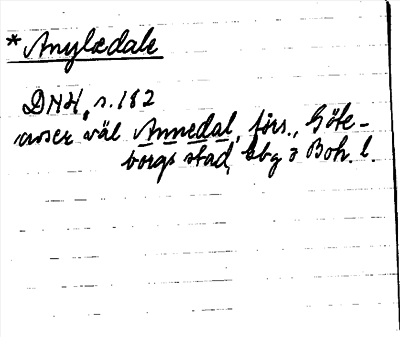 *Anyledale
DNH, s. 182
avser väl Annedal, förs., Göte-
borgs stad, Gbg o Boh. l.